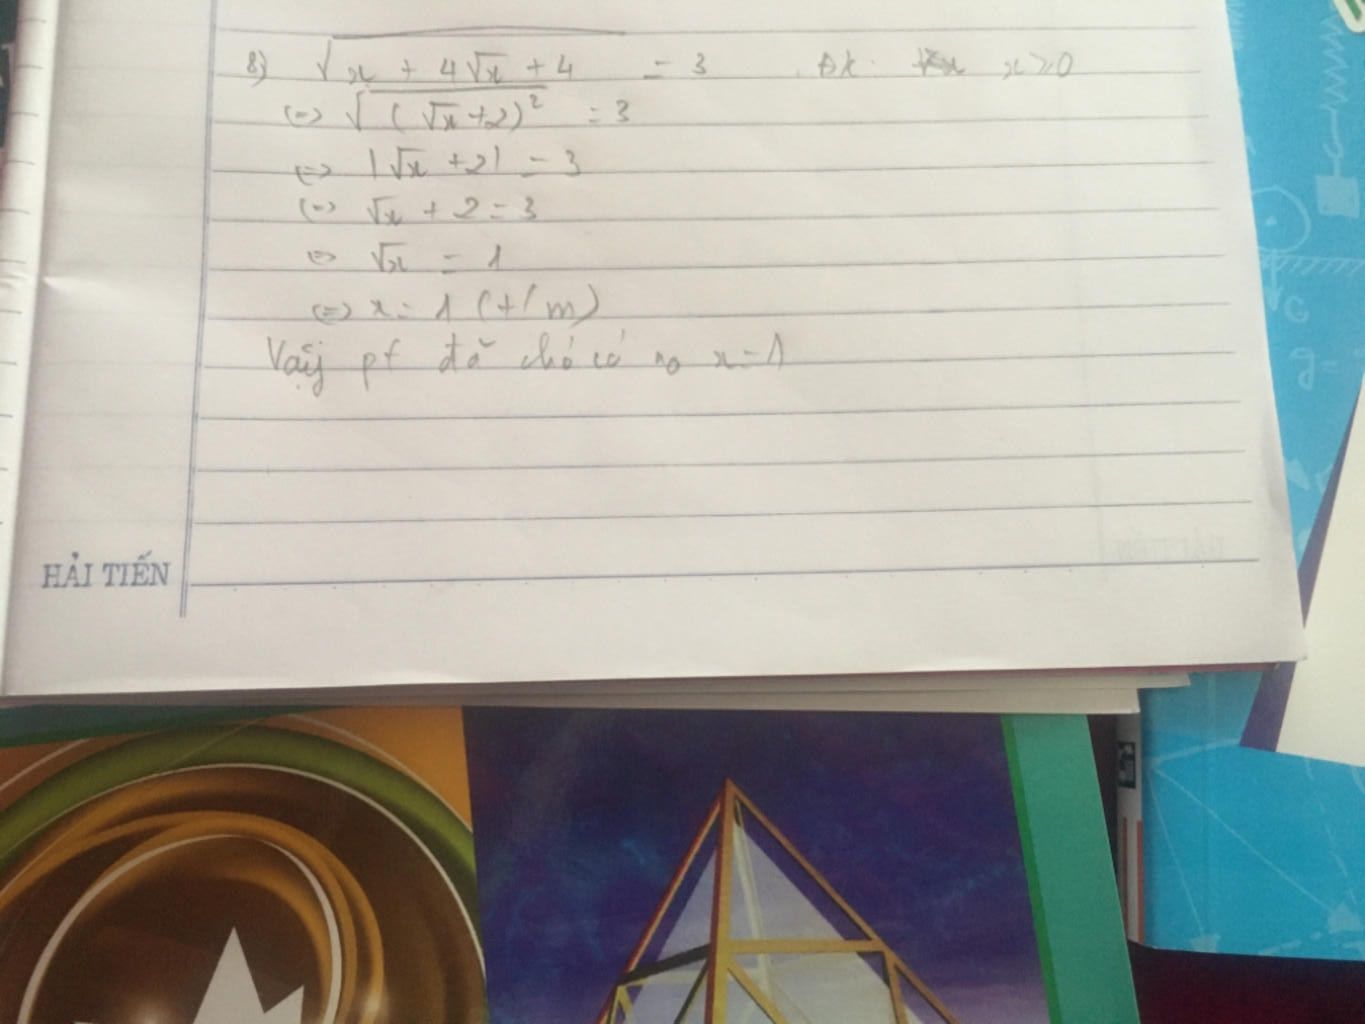 8) √(x + 4√x + 4) = 3 ĐK: x ≥ 0
<=> √((√x + 2)²) = 3
<=> |√x + 2| = 3
<=> √x + 2 = 3
<=> √x = 1
<=> x = 1 (t/m)
Vậy pt đã cho có no x = 1
HẢI TIẾN